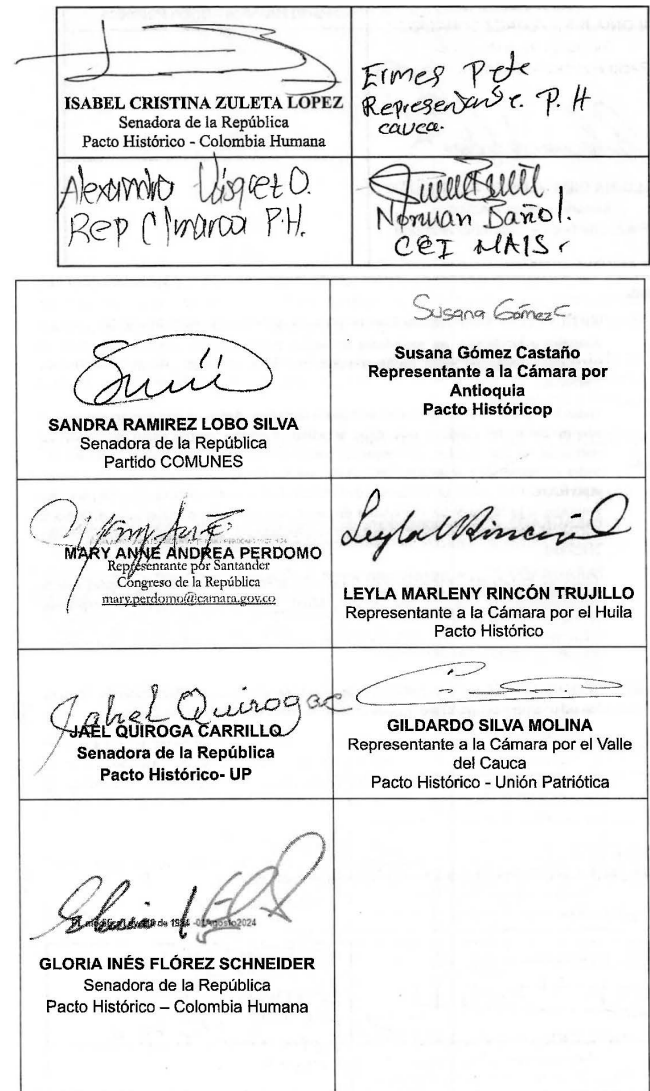 ISABEL CRISTINA ZULETA LOPEZ
Senadora de la República
Pacto Histórico - Colombia Humana
Ermes Pete
Representante. P. H
cauca.
Alexandra Vásquez O.
Rep C/marca P.H.
Norman Bañol.
CEI MAIS
SANDRA RAMIREZ LOBO SILVA
Senadora de la República
Partido COMUNES
Susana Gómez C
Susana Gómez Castaño
Representante a la Cámara por
Antioquia
Pacto Históricop
MARY ANNE ANDREA PERDOMO
Representante por Santander
Congreso de la República
mary.perdomo@camara.gov.co
Leyla M Rincón
LEYLA MARLENY RINCÓN TRUJILLO
Representante a la Cámara por el Huila
Pacto Histórico
Jahel Quiroga C
JAEL QUIROGA CARRILLO
Senadora de la República
Pacto Histórico- UP
GILDARDO SILVA MOLINA
Representante a la Cámara por el Valle
del Cauca
Pacto Histórico - Unión Patriótica
de 1994 -01Agosto2024
GLORIA INÉS FLÓREZ SCHNEIDER
Senadora de la República
Pacto Histórico – Colombia Humana